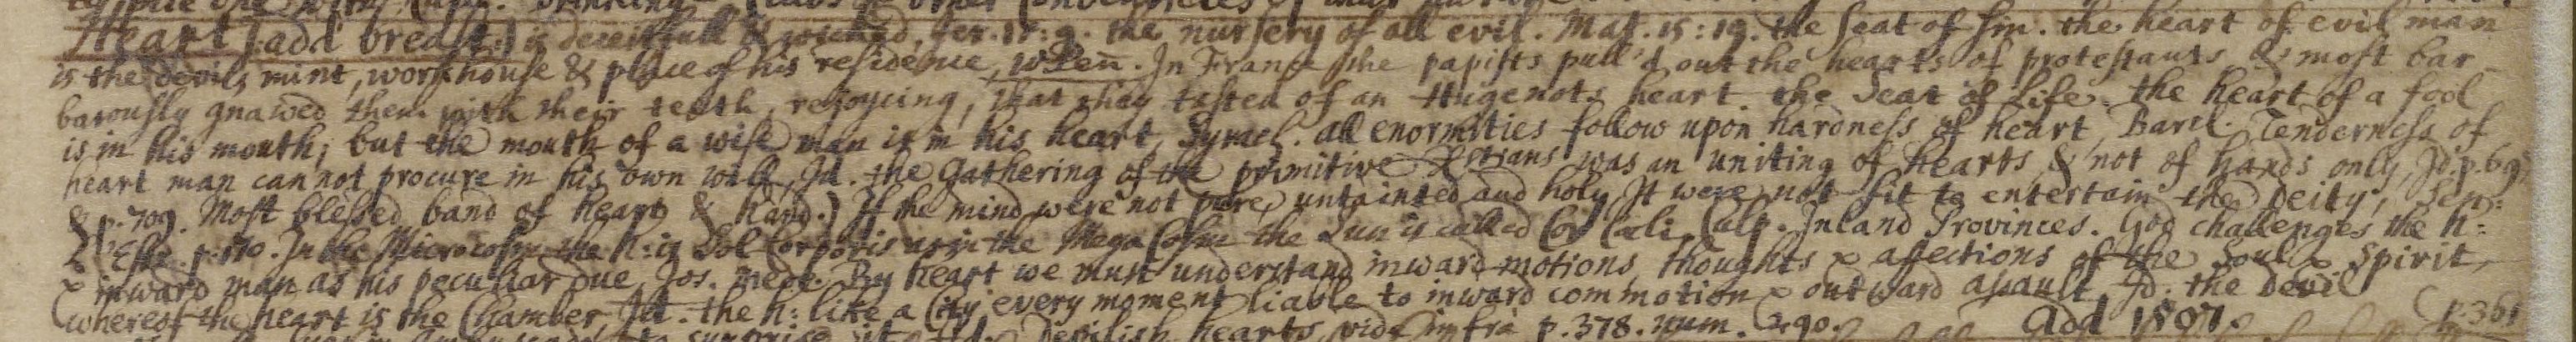 Heart [add breast.] is deceitfull & wicked, Jer. 17:9. the nursery of all evil. Mat. 15:19. the seat of sin. the heart of evil man
is the devils mint, workhouse & place of his residence, when. In France the papists pull'd out the hearts of protestants & most bar-
barously gnawed them with their teeth, rejoycing, that they tasted of an Hugenots heart. the seat of life. the heart of a fool
is in his mouth; but the mouth of a wise man is in his heart, Syrach. all enormities follow upon hardness of heart, Barcl. Tenderness of
heart man can not procure in his own will, Id. the Gathering of the primitive Xstians was an uniting of hearts, & not of hands only, Id. p. 69
& p. 709. Most blessed band of heart & hand.) If the mind were not pure, untainted and holy, It were not fit to entertain the Deity, Sen:
L'Estr. p. 110. In the Microcosm the h: is Sol Corporis as in the Mega Cosm the Sun is called Cor Cæli, Calp. Inland Provinces. God challenges the h:
& inward man as his peculiar due, Jos. mede. By heart we must understand inward motions, thoughts & affections of the Soul & Spirit,
whereof the heart is the Chamber, Id. the h: like a City every moment liable to inward commotion & outward assault, Id. the devil
surprise it. Id. Devilish hearts, vide infra p. 378. num. 290. Add 1897. (p. 361